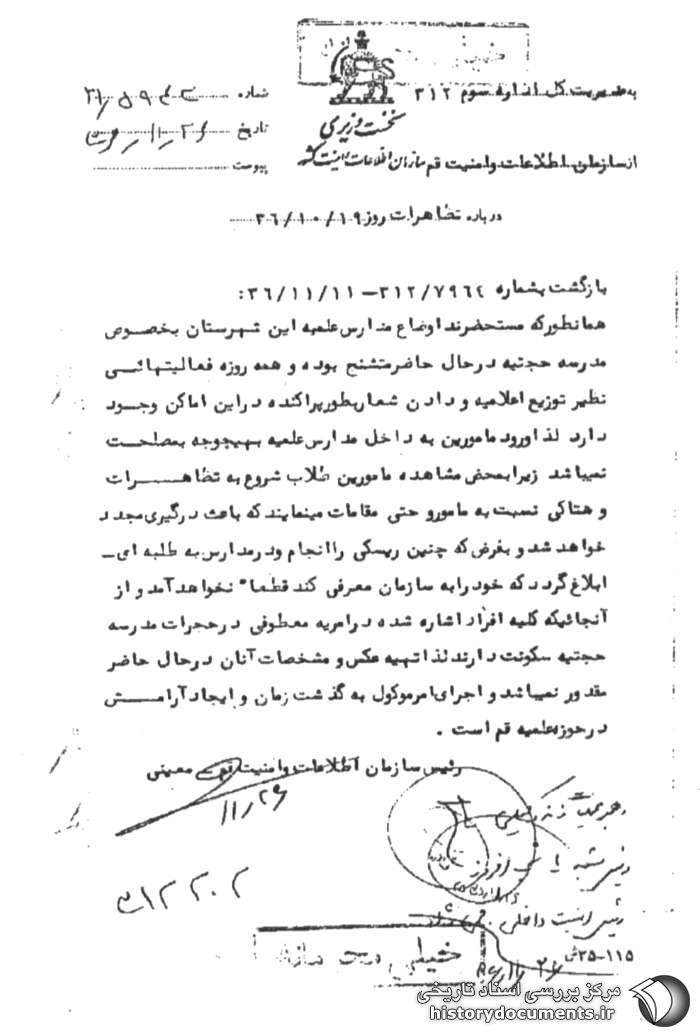 به مدیریت کل اداره سوم ۳۱۲
نخست وزیری
سازمان اطلاعات و امنیت کشور
از سازمان اطلاعات و امنیت قم
شماره
تاریخ
پیوست
درباره تظاهرات روز ۳۶/۱۰/۱۹
بازگشت بشماره ۳۱۲/۷۹۶۴ – ۳۶/۱۱/۱۱:
همانطور که مستحضرند اوضاع مدارس علمیه این شهرستان بخصوص
مدرسه حجتیه در حال حاضر متشنج بوده و همه روزه فعالیتهائی
نظیر توزیع اعلامیه و دادن شعار بطور پراکنده در این اماکن وجود
دارد لذا ورود مامورین به داخل مدارس علمیه بهیچوجه بمصلحت
نمیباشد زیرا بمحض مشاهده مامورین طلاب شروع به تظاهرات
و هتاکی نسبت به مامور و حتی مقامات مینمایند که باعث درگیری مجدد
خواهد شد و بفرض که چنین ریسکی را انجام و در مدارس به طلبه ای –
ابلاغ گردد که خود را به سازمان معرفی کند قطعا" نخواهد آمد و از
آنجائیکه کلیه افراد اشاره شده در امریه معطوفی در حجرات مدرسه
حجتیه سکونت دارند لذا تهیه عکس و مشخصات آنان در حال حاضر
مقدور نمیباشد و اجرای امر موکول به گذشت زمان و ایجاد آرامش
در حوزه علمیه قم است .
رئیس سازمان اطلاعات و امنیت قم – معینی
۱۱/۲۶
رهبر عملیات
رئیس امنیت داخلی
۳۱۲ ۲۰۲
۳۵-۱۱۵ش
خیلی محرمانه
مرکز بررسی اسناد تاریخی
historydocuments.ir